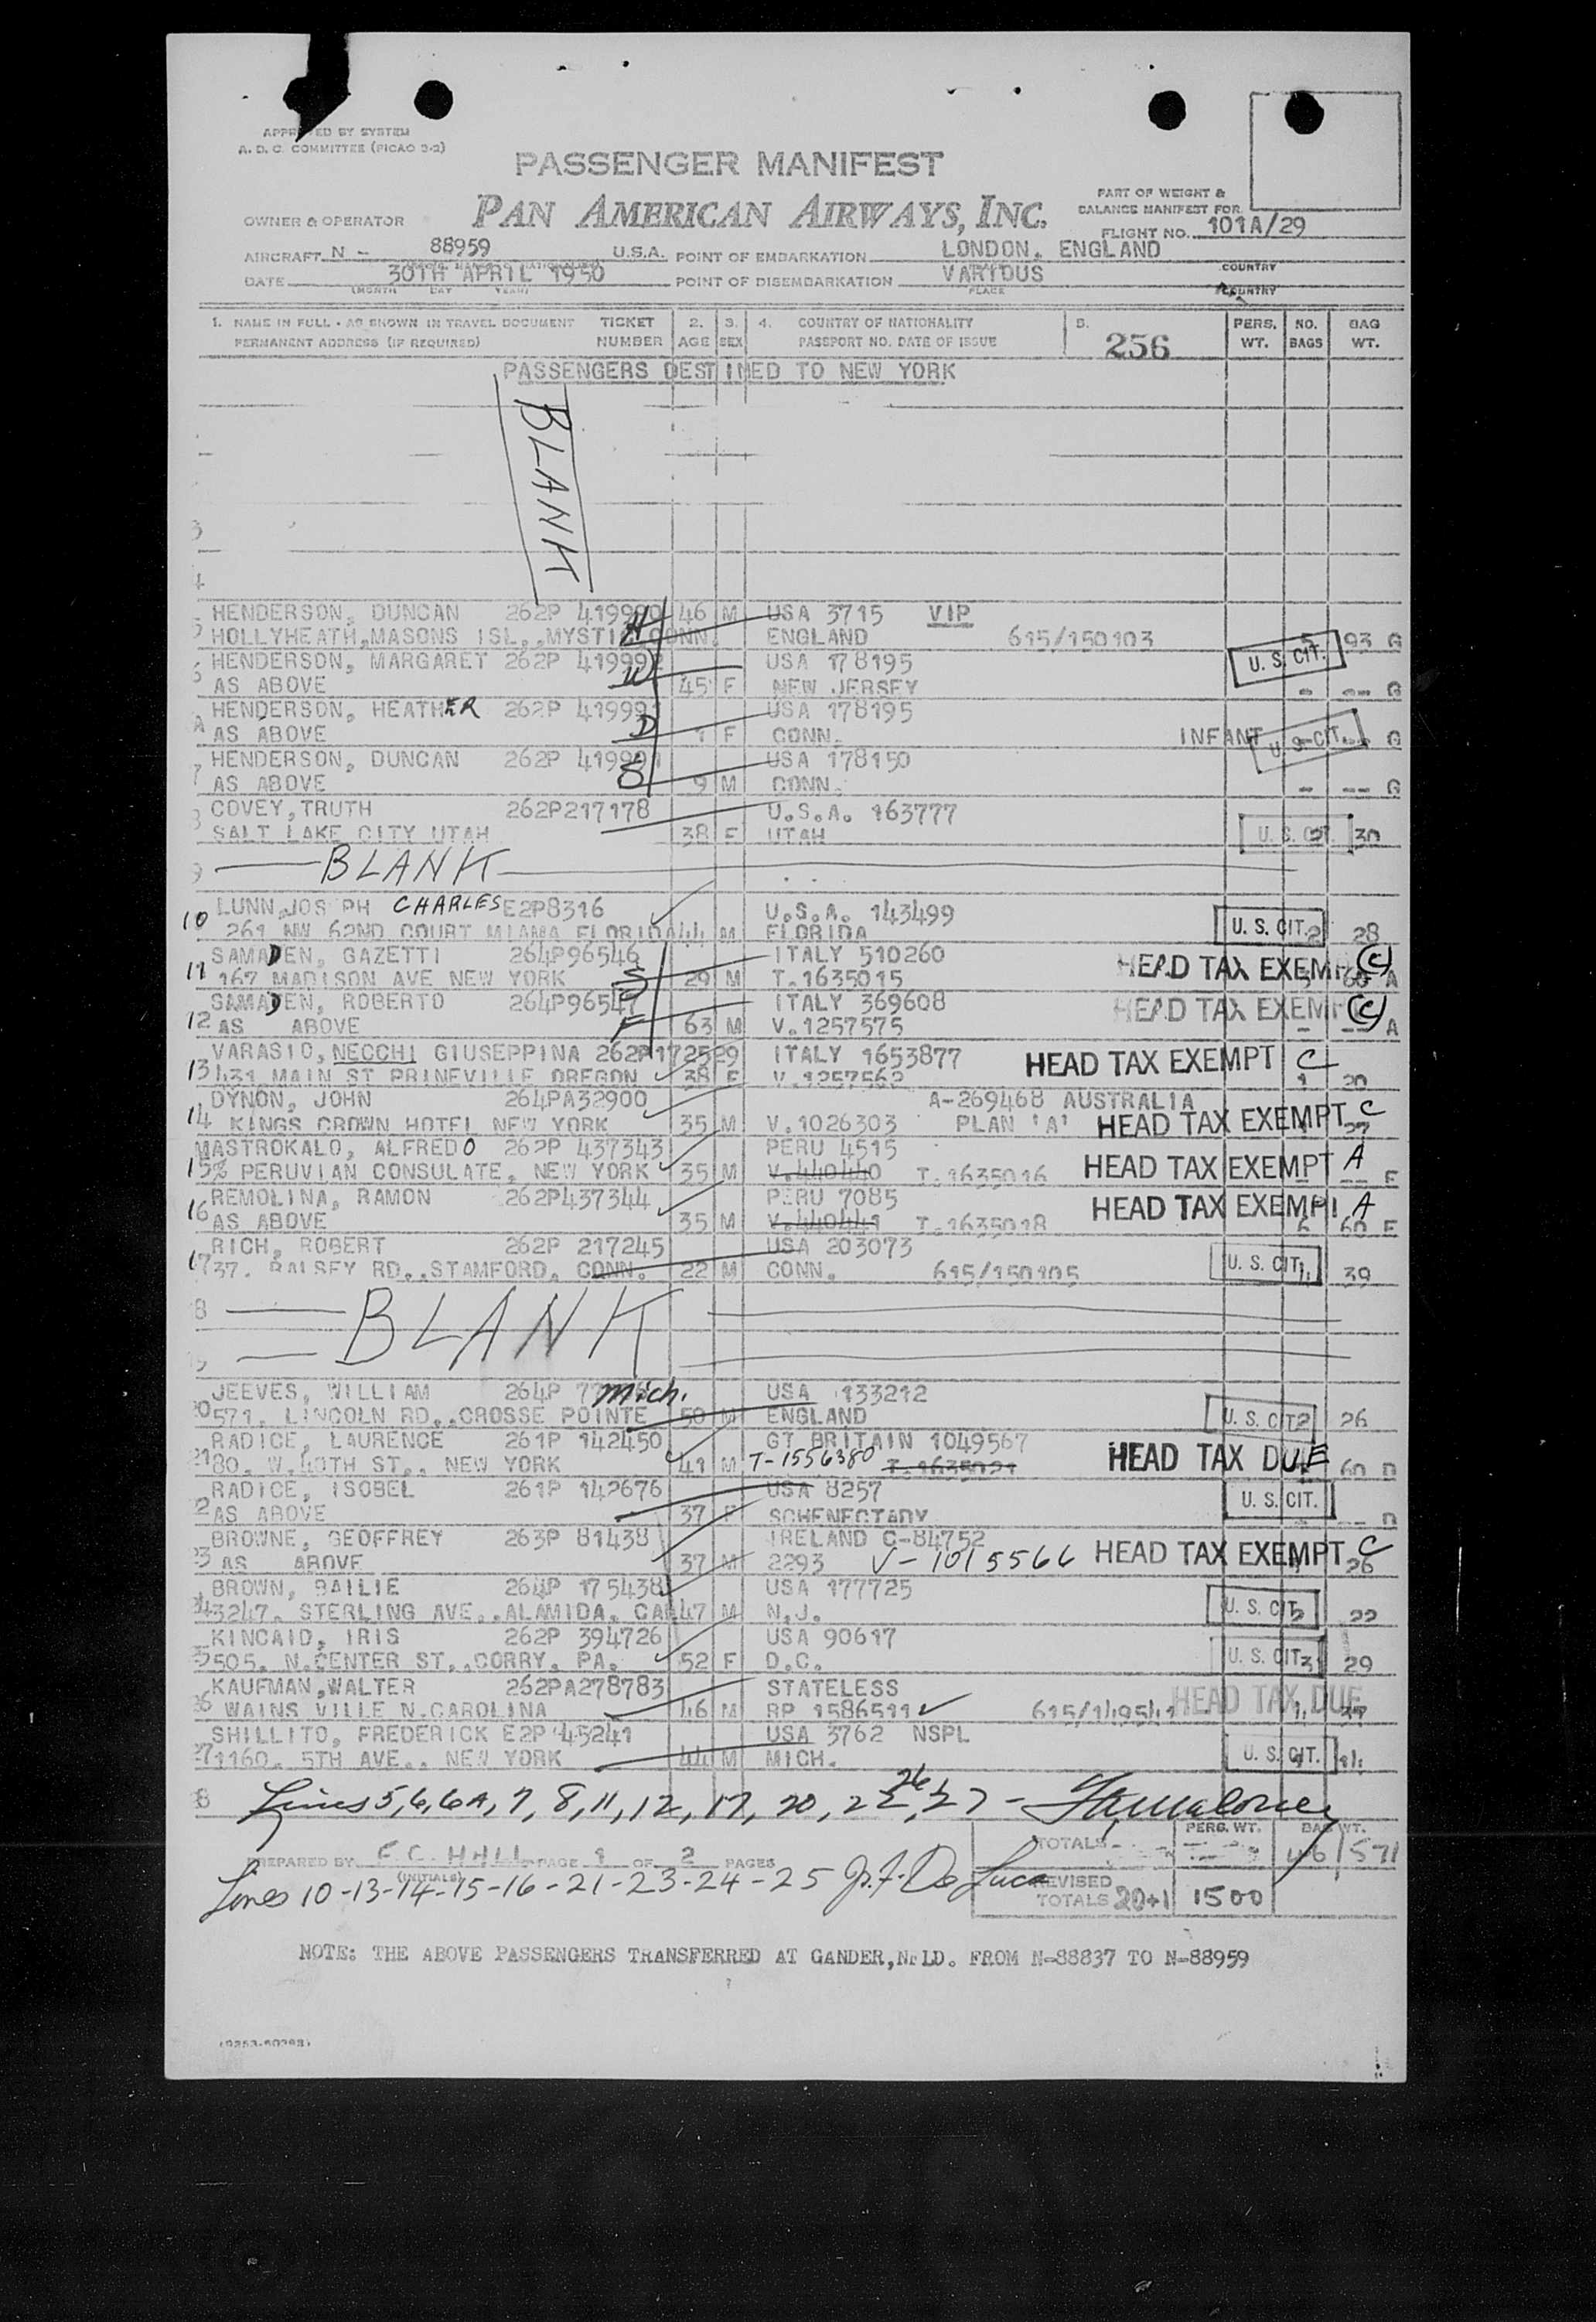 APPROVED BY SYSTEM
A. D. C. COMMITTEE (PICAO 2-2)
PASSENGER MANIFEST
OWNER & OPERATOR PAN AMERICAN AIRWAYS, INC.
PART OF WEIGHT &
BALANCE MANIFEST FOR
FLIGHT NO. 101A/29
AIRCRAFT N - 88959 U.S.A. POINT OF EMBARKATION LONDON, ENGLAND
COUNTRY
DATE 30TH APRIL 1950 POINT OF DISEMBARKATION VARIOUS
(MONTH DAY YEAR) PLACE COUNTRY
1. NAME IN FULL - AS SHOWN IN TRAVEL DOCUMENT TICKET 2. 3. 4. COUNTRY OF NATIONALITY 5. 256 PERS. NO. BAG
PERMANENT ADDRESS (IF REQUIRED) NUMBER AGE SEX PASSPORT NO. DATE OF ISSUE WT. BAGS WT.
PASSENGERS DESTINED TO NEW YORK
BLANK
3
4
HENDERSON, DUNCAN 262P 419990 46 M USA 3715 VIP
5 HOLLYHEATH,MASONS ISL,,MYSTIC CONN. H ENGLAND 615/150103 5 93 G
U. S. CIT.
HENDERSON, MARGARET 262P 419992 USA 178195
6 AS ABOVE W 45 F NEW JERSEY - -- G
HENDERSON, HEATHER 262P 419991 USA 178195
A AS ABOVE D 1 F CONN. INFANT U. S. CIT. G
HENDERSON, DUNCAN 262P USA 178150
7 AS ABOVE S 9 M CONN. - -- G
COVEY,TRUTH 262P217178 U.S.A. 163777
8 SALT LAKE CITY UTAH 38 F UTAH U. S. CIT. 30
9 BLANK
LUNN,JOSEPH CHARLES E2P8316 U.S.A. 143499
10 261 NW 62ND COURT MIAMA FLORIDA 44 M FLORIDA U. S. CIT. 2 28
SAMADEN, GAZETTI 264P96546 ITALY 510260
11 167 MADISON AVE NEW YORK S 29 M T.1635015 HEAD TAX EXEMPT (C) 60 A
SAMADEN, ROBERTO 264P96547 ITALY 369608
12 AS ABOVE F 63 M V.1257575 HEAD TAX EXEMPT (C) - -- A
VARASIO,NECCHI GIUSEPPINA 262P172529 ITALY 1653877
13 431 MAIN ST PRINEVILLE OREGON 38 F V.1257562 HEAD TAX EXEMPT C 1 20
DYNON, JOHN 264PA32900 A-269468 AUSTRALIA
14 KINGS CROWN HOTEL NEW YORK 35 M V.1026303 PLAN 'A' HEAD TAX EXEMPT C 27
MASTROKALO, ALFREDO 262P 437343 PERU 4515
15 % PERUVIAN CONSULATE, NEW YORK 35 M V.440440 T.1635016 HEAD TAX EXEMPT A - -- E
REMOLINA, RAMON 262P437344 PERU 7085
16 AS ABOVE 35 M V.440441 T.1635018 HEAD TAX EXEMPT A 6 60 E
RICH, ROBERT 262P 217245 USA 203073
17 37. RALSEY RD,.STAMFORD, CONN. 22 M CONN. 615/150105 U. S. CIT. 39
18 BLANK
JEEVES, WILLIAM 264P Mich. USA 133212
20 571. LINCOLN RD,.CROSSE POINTE 50 M ENGLAND U. S. CIT. 2 26
RADICE, LAURENCE 261P 142450 GT BRITAIN 1049567
21 80. W.40TH ST., NEW YORK 41 M T-1556380 T.1635021 HEAD TAX DUE 60 D
RADICE, ISOBEL 261P 142676 USA 8257
22 AS ABOVE 37 F SCHENECTADY U. S. CIT. - -- D
BROWNE, GEOFFREY 263P 81438 IRELAND C-84752
23 AS ABOVE 37 M 2293 V-1015566 HEAD TAX EXEMPT C 26
BROWN, BAILIE 264P 175438 USA 177725
24 3247. STERLING AVE,.ALAMIDA. CAL 47 M N.J. U. S. CIT. 2 22
KINCAID, IRIS 262P 394726 USA 90617
25 505. N.CENTER ST,.CORRY, PA. 52 F D.C. U. S. CIT. 3 29
KAUFMAN,WALTER 262PA278783 STATELESS
26 WAINS VILLE N.CAROLINA 46 M RP 1586511 615/149541 HEAD TAX DUE
SHILLITO, FREDERICK E2P 45241 USA 3762 NSPL
27 1160. 5TH AVE., NEW YORK 44 M MICH. U. S. CIT.
28 Lines 5,6,6A,7,8,11,12,17,20,22,26,27 -
PREPARED BY F.C. HALL PAGE 1 OF 2 PAGES
(INITIALS)
TOTALS PERS. WT. BAG WT. 46 571
Lines 10-13-14-15-16-21-23-24-25 J. F. De Luca
REVISED TOTALS 20+1 1500
NOTE: THE ABOVE PASSENGERS TRANSFERRED AT GANDER,NFLD. FROM N-88837 TO N-88959